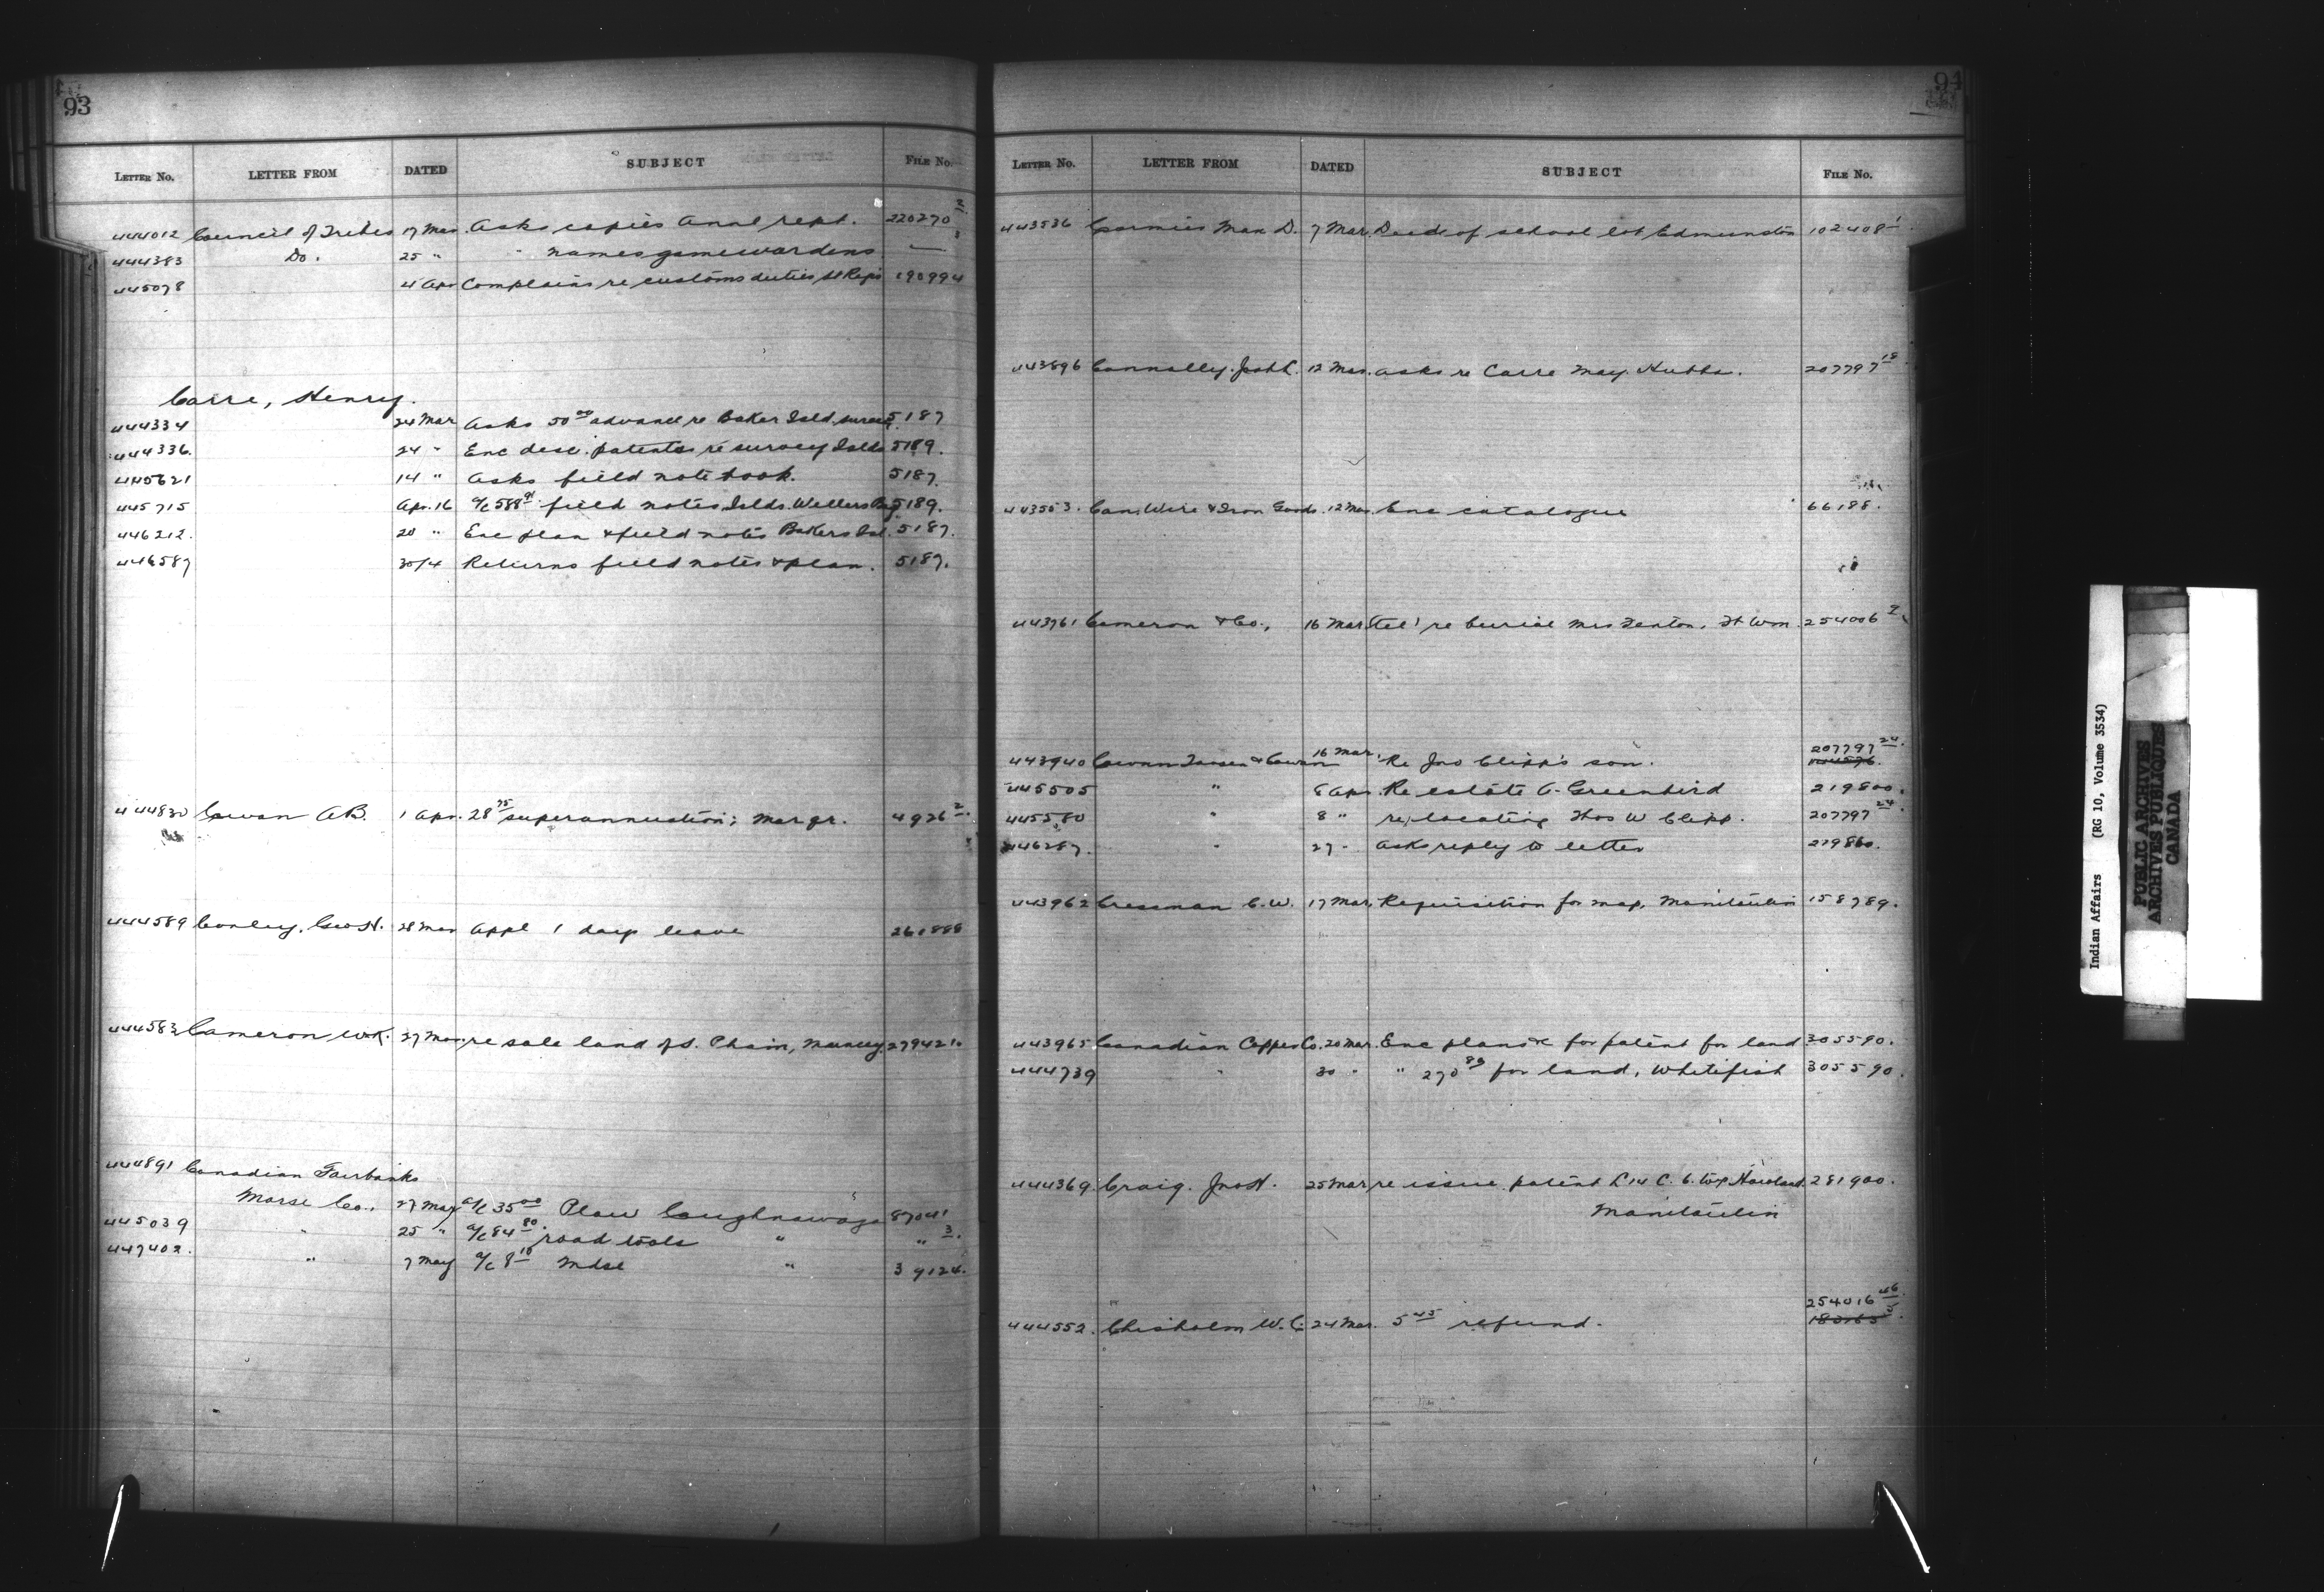 93
LETTER No. LETTER FROM DATED SUBJECT FILE No.
444012 Council of Tribes 17 Mar. Asks copies Annl rept. 220270 2
444383 Do. 25 " " names gamewardens — 3
445078 4 Apr Complains re customs duties St Regis 190994
Carre, Henry.
444334 24 Mar Asks 50 00 advance re Baker Isld. survey 5187
444336. 24 " Enc desc. patents re survey Islds 5189.
445621 14 " Asks field note book. 5187.
445715 Apr. 16 a/c 588 91 field notes Islds. Wellers Bay 5189.
446212. 20 " Enc plan & field notes Bakers Isl. 5187.
446587 30/4 Returns field notes & plan. 5187.
444830 Cowan A.B. 1 Apr. 28 75 superannuation; Mar qr. 4926 2
444589 Conley, Geo H. 28 Mar Appl 1 days leave
444583 Cameron W.K. 27 Mar. re sale land of S. Muncey. 279421.
444891 Canadian Fairbanks
Morse Co., 27 Mar a/c 35 00 Plow Caughnawaga 87041
445039 " 25 " a/c 84 80 road tools " " 3.
447402. " 7 May a/c 8 10 Mdse " 39124.
94
LETTER No. LETTER FROM DATED SUBJECT FILE No.
443536 Cormier Max D. 7 Mar. Deed of school lot Edmunston 102408 1
443896 Connolly. Jos 12 Mar. asks re Carre May Hubbs. 207797 18
443553. Can. Wire & Iron Goods. 12 Mar. Enc catalogue 66188.
443761 Cameron & Co., 16 Mar. tel' re burial Mrs Fenton, Ft Wm. 254006 2
443940 Cowan & Cowan 16 Mar. Re Jno Clipp's son. 207797 24.
445505 " 8 Apr. Re estate A. Greenbird 219800.
445580 " 8 " re locating Thos W Clipp. 207797 24.
446287. " 27 " asks reply to letter 219860.
443962 Cressman C.W. 17 Mar. Requisition for map, Manitoulin 158789.
443965 Canadian Copper Co. 20 Mar. Enc plans &c for patent for land 305590.
444739 " 30 " " 270 89 for land, Whitefish 305590.
444369. Craig. Jno H. 25 Mar re issue patent L 14 C. 6. twp Howland 281900.
Manitoulin
254016 46
444552. Chisholm W. C. 24 Mar. 5 45 refund. 183165 5.
Indian Affairs (RG 10, Volume 3534)
PUBLIC ARCHIVES
ARCHIVES PUBLIQUES
CANADA